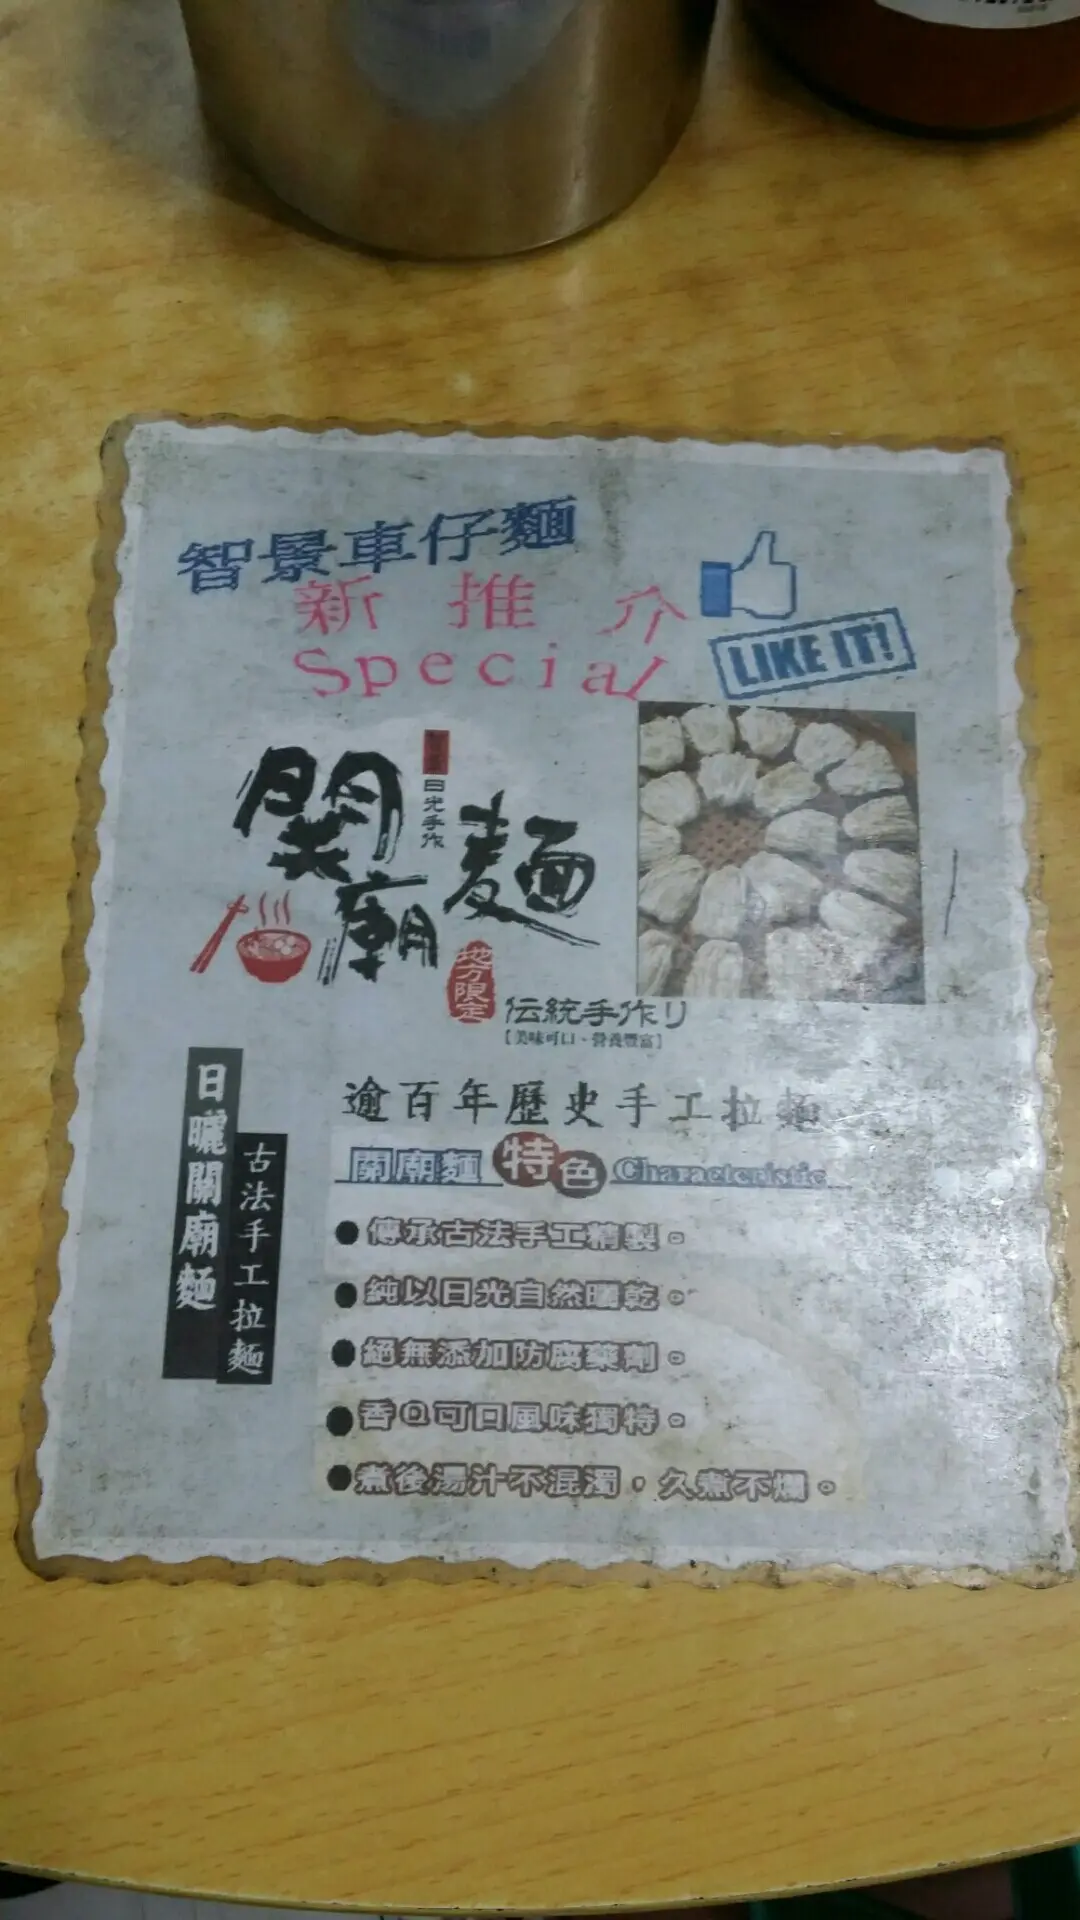 智景車仔麵
新推介
Special
LIKE IT!
關廟麵
日光手作
地方限定
伝統手作り
【美味可口、營養豐富】
日曬關廟麵
古法手工拉麵
逾百年歷史手工拉麵
關廟麵 特色 Characteristic
●傳承古法手工精製。
●純以日光自然曬乾。
●絕無添加防腐藥劑。
●香Q可口風味獨特。
●煮後湯汁不混濁，久煮不爛。